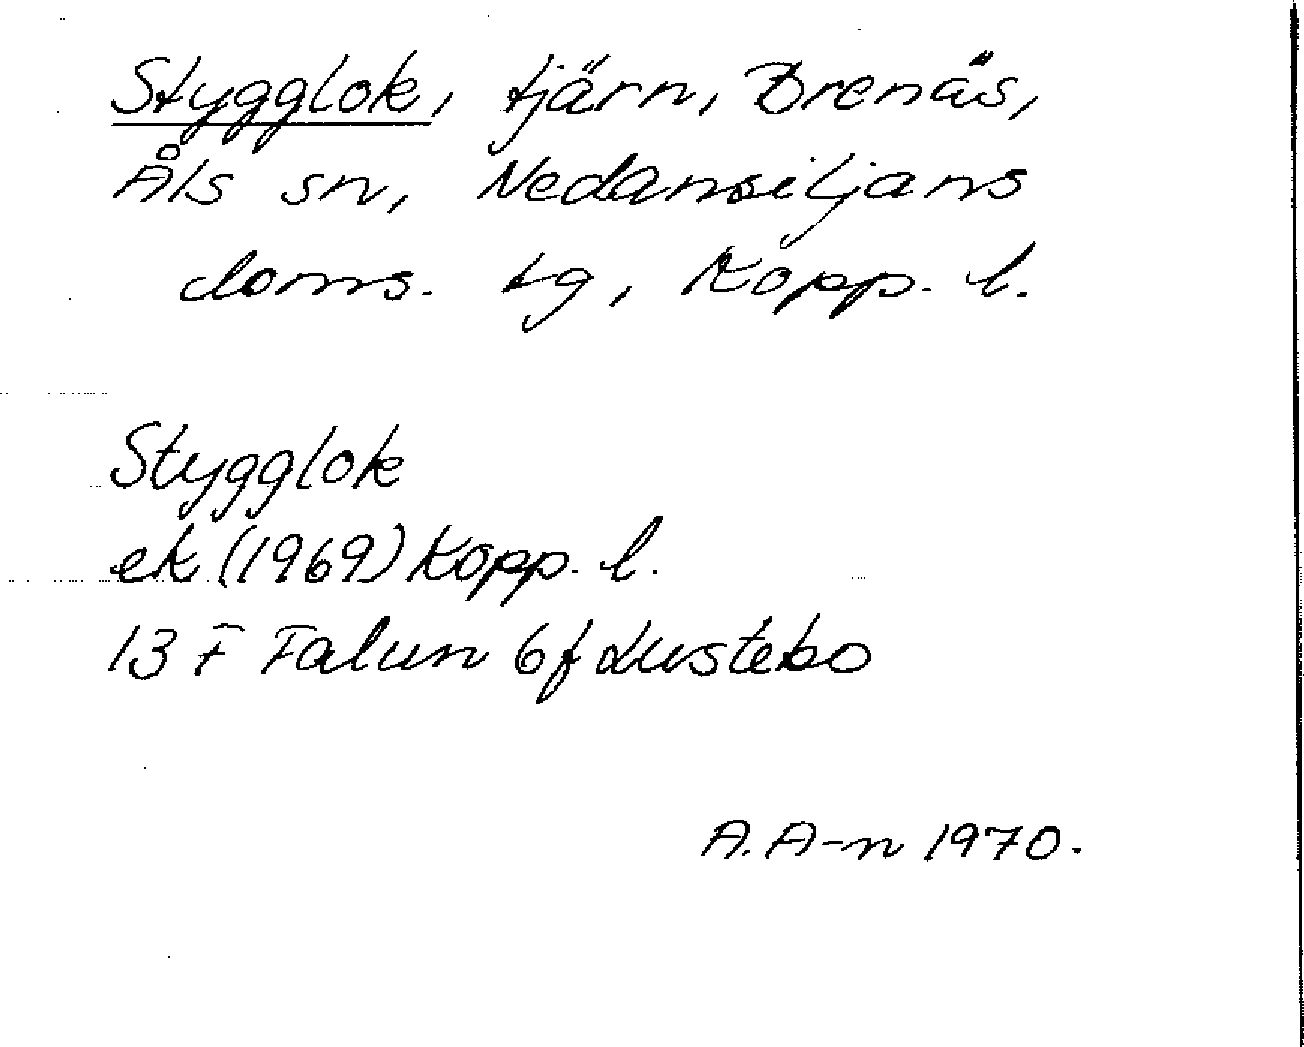 Stygglok, tjärn, Brenäs,
Åls sn, Nedansiljans
doms. tg, Kopp. l.
Stygglok
ek (1969) Kopp. l.
13 F Falun 6f Lustebo
A. A-n 1970.